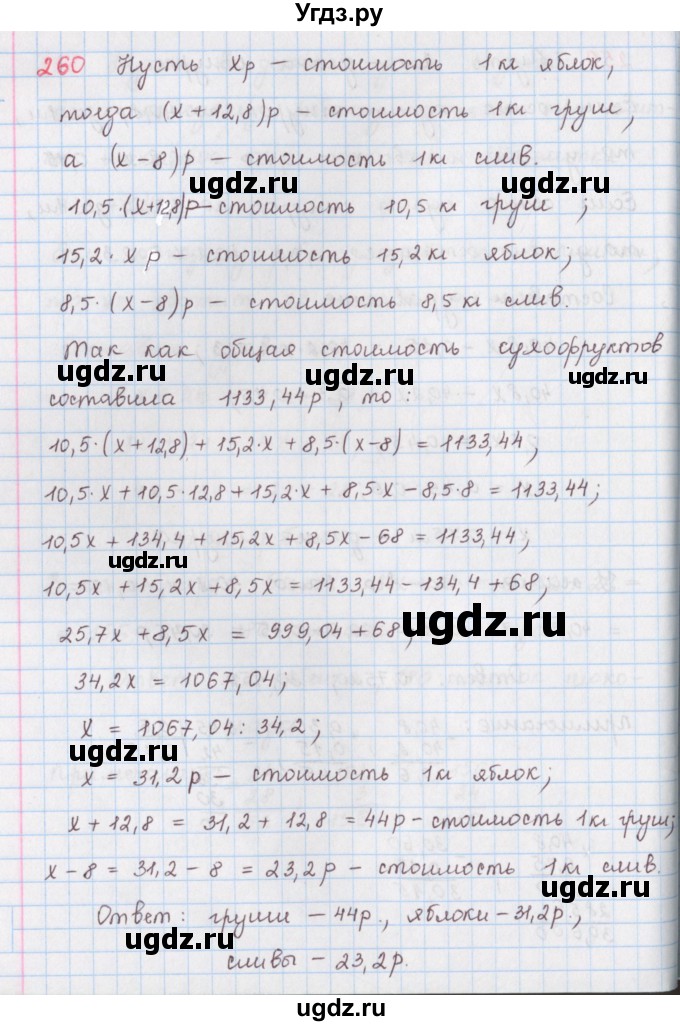 Угдз.ру
260 Пусть Xр – стоимость 1кг яблок,
тогда (x + 12,8)р – стоимость 1кг груш,
а (x – 8)р – стоимость 1кг слив.
ugdz.ru ugdz.ru
10,5·(x+12,8)р – стоимость 10,5 кг груш ;
15,2· x р – стоимость 15,2кг яблок;
8,5· (x – 8)р – стоимость 8,5 кг слив.
Так как общая стоимость сухофруктов
ugdz.ru ugdz.ru
составила 1133,44р , то :
10,5·(x+12,8) + 15,2·x + 8,5·(x–8) = 1133,44;
10,5·x + 10,5·12,8 + 15,2·x + 8,5·x – 8,5·8 = 1133,44;
10,5x + 134,4 + 15,2x + 8,5x – 68 = 1133,44;
ugdz.ru
10,5x + 15,2x + 8,5x = 1133,44 – 134,4 + 68;
25,7x + 8,5x = 999,04 + 68;
ugdz.ru
34,2x = 1067,04;
x = 1067,04 : 34,2 ;
ugdz.ru
x = 31,2р – стоимость 1кг яблок;
x + 12,8 = 31,2 + 12,8 = 44р – стоимость 1кг груш;
x – 8 = 31,2 – 8 = 23,2р – стоимость 1кг слив.
ugdz.ru
Ответ: груши – 44р., яблоки – 31,2р.,
ugdz.ru ugdz.ru
сливы – 23,2р.
ugdz.ru